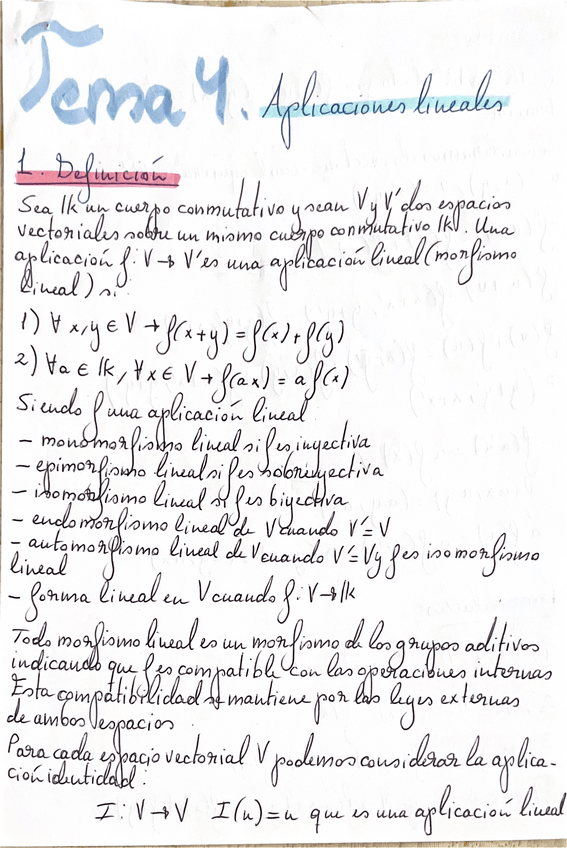 Tema 4. Aplicaciones lineales
1. Definición
Sea lK un cuerpo conmutativo y sean V y V' dos espacios
vectoriales sobre un mismo cuerpo conmutativo lK. Una
aplicación f: V → V' es una aplicación lineal (morfismo
lineal) si:
1) ∀ x,y ∈ V → f(x+y) = f(x)+f(y)
2) ∀a ∈ lK, ∀x ∈ V → f(ax) = a f(x)
Siendo f una aplicación lineal
- monomorfismo lineal si f es inyectiva
- epimorfismo lineal si f es sobreyectiva
- isomorfismo lineal si f es biyectiva
- endomorfismo lineal de V cuando V'=V
- automorfismo lineal de V cuando V'=V y f es isomorfismo
lineal
- forma lineal en V cuando f: V→lK
Todo morfismo lineal es un morfismo de los grupos aditivos
indicando que f es compatible con las operaciones internas
Esta compatibilidad se mantiene por las leyes externas
de ambos espacios.
Para cada espacio vectorial V podemos considerar la aplica-
ción identidad:
I: V → V I(u)=u que es una aplicación lineal